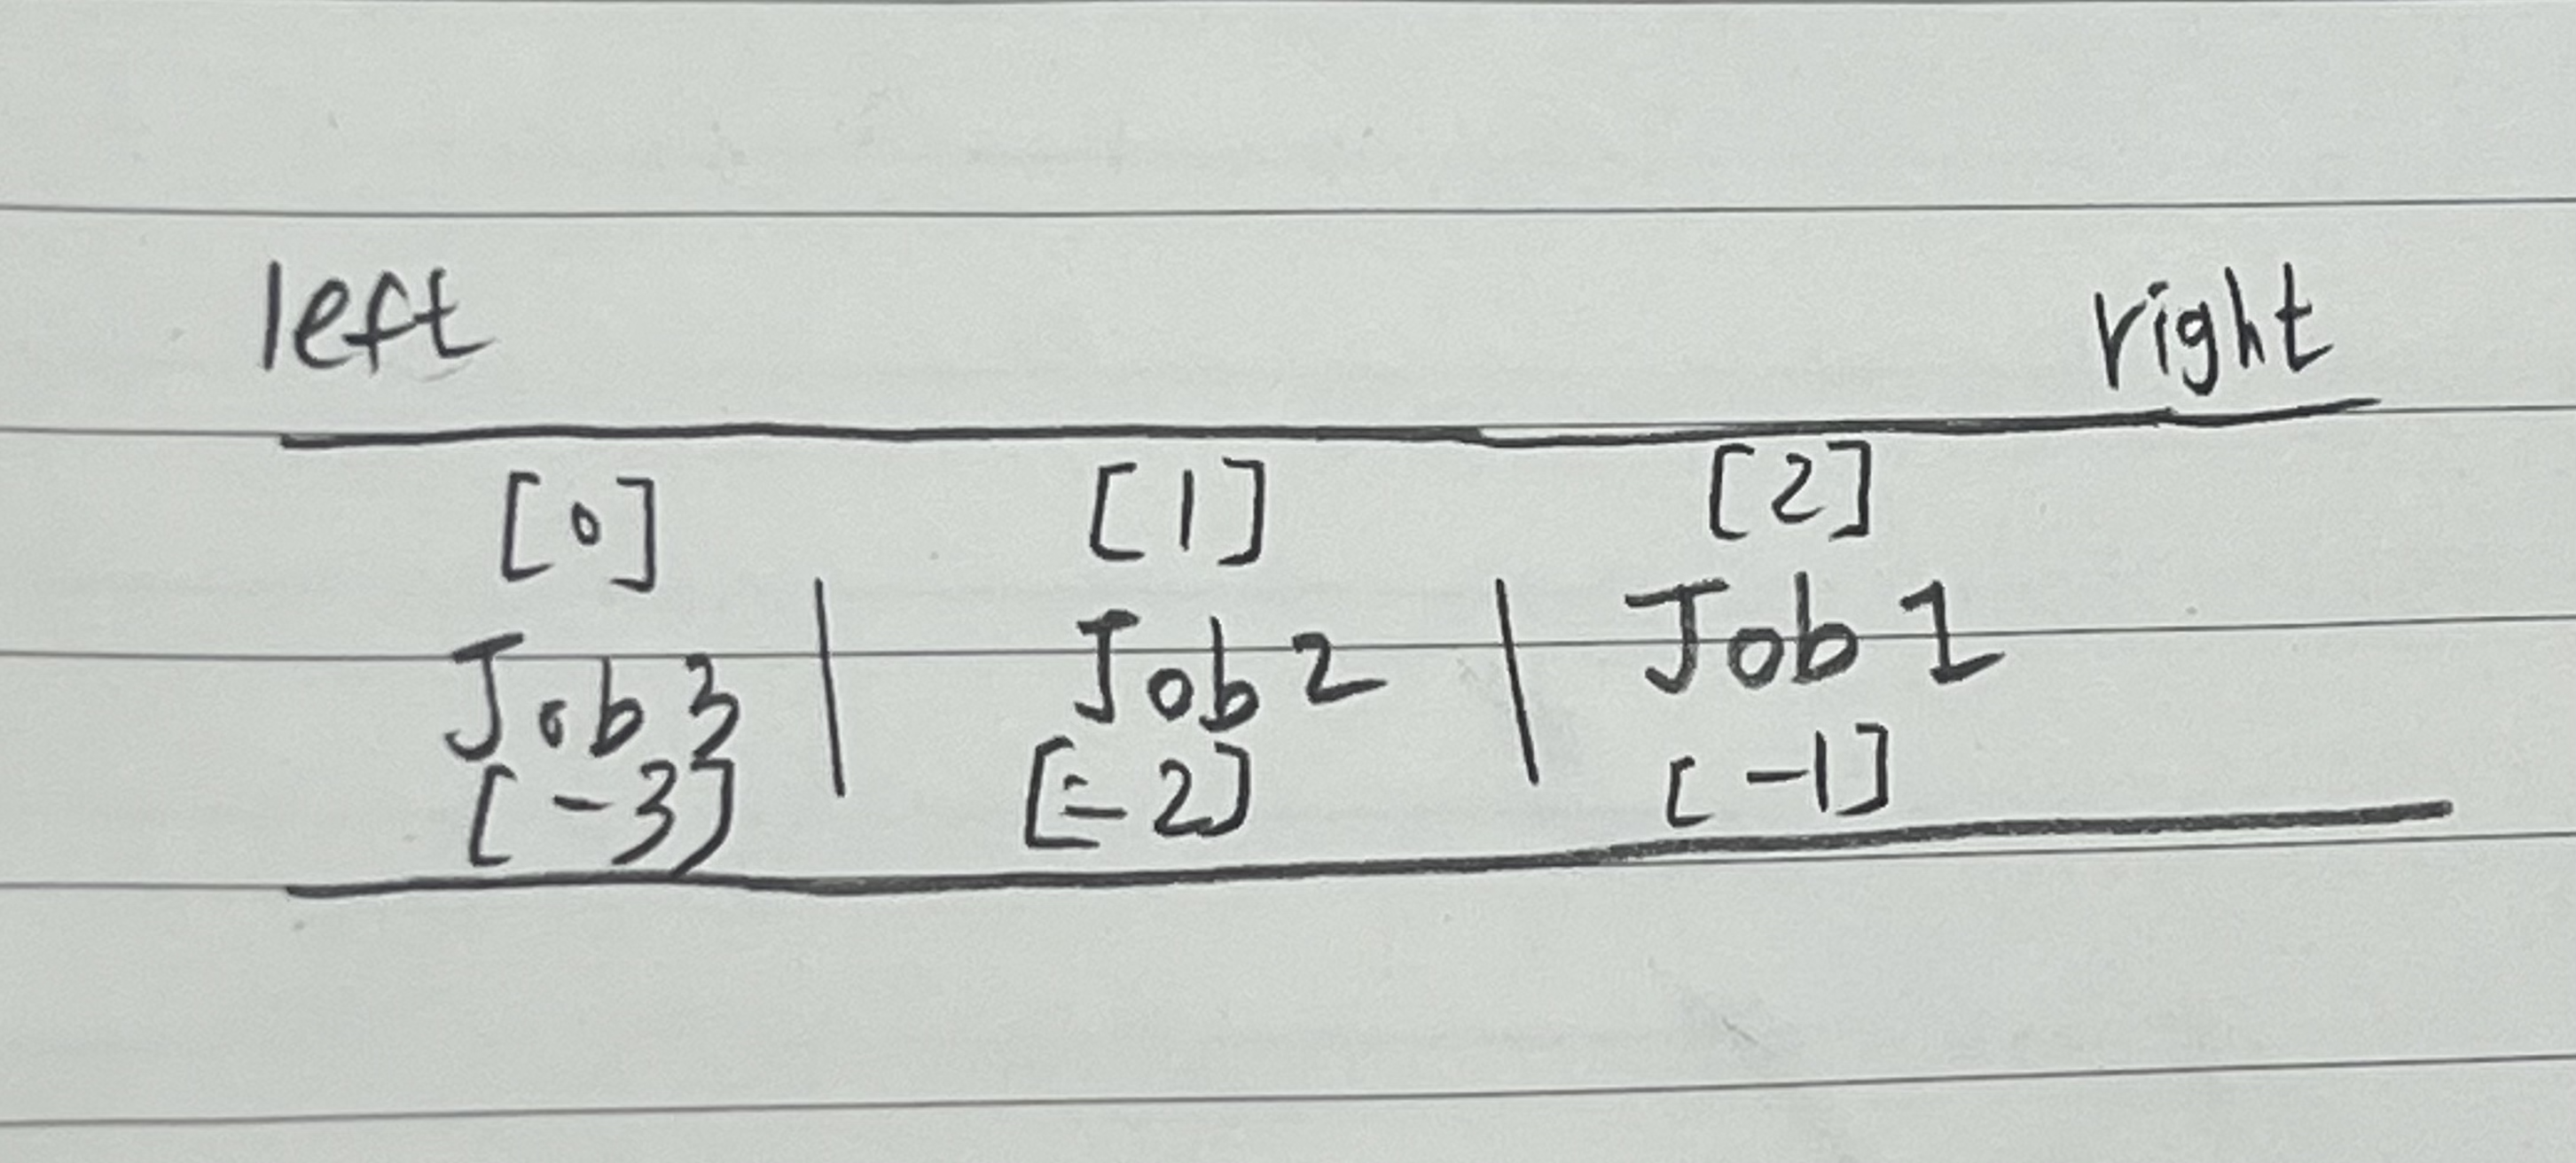 left right
[0] [1] [2]
Job 3 | Job 2 | Job 1
[-3] [-2] [-1]